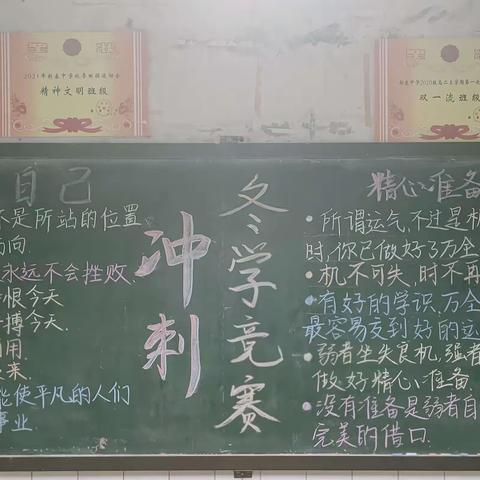 奖状
2021年新泰中学秋季田径运动会
精神文明班级
双一流班级
自己
不是所站的位置
方向.
永远不会挫败.
恨今天
搏今天.
用.
来.
能使平凡的人们
事业.
冲刺
冬学竞赛
精心准备
• 所谓运气,不过是机
时,你已做好了万全
• 机不可失,时不再
• 有好的学识,万全
最容易交到好的运
• 弱者坐失良机,强者
做好精心准备.
• 没有准备是弱者自
完美的借口.